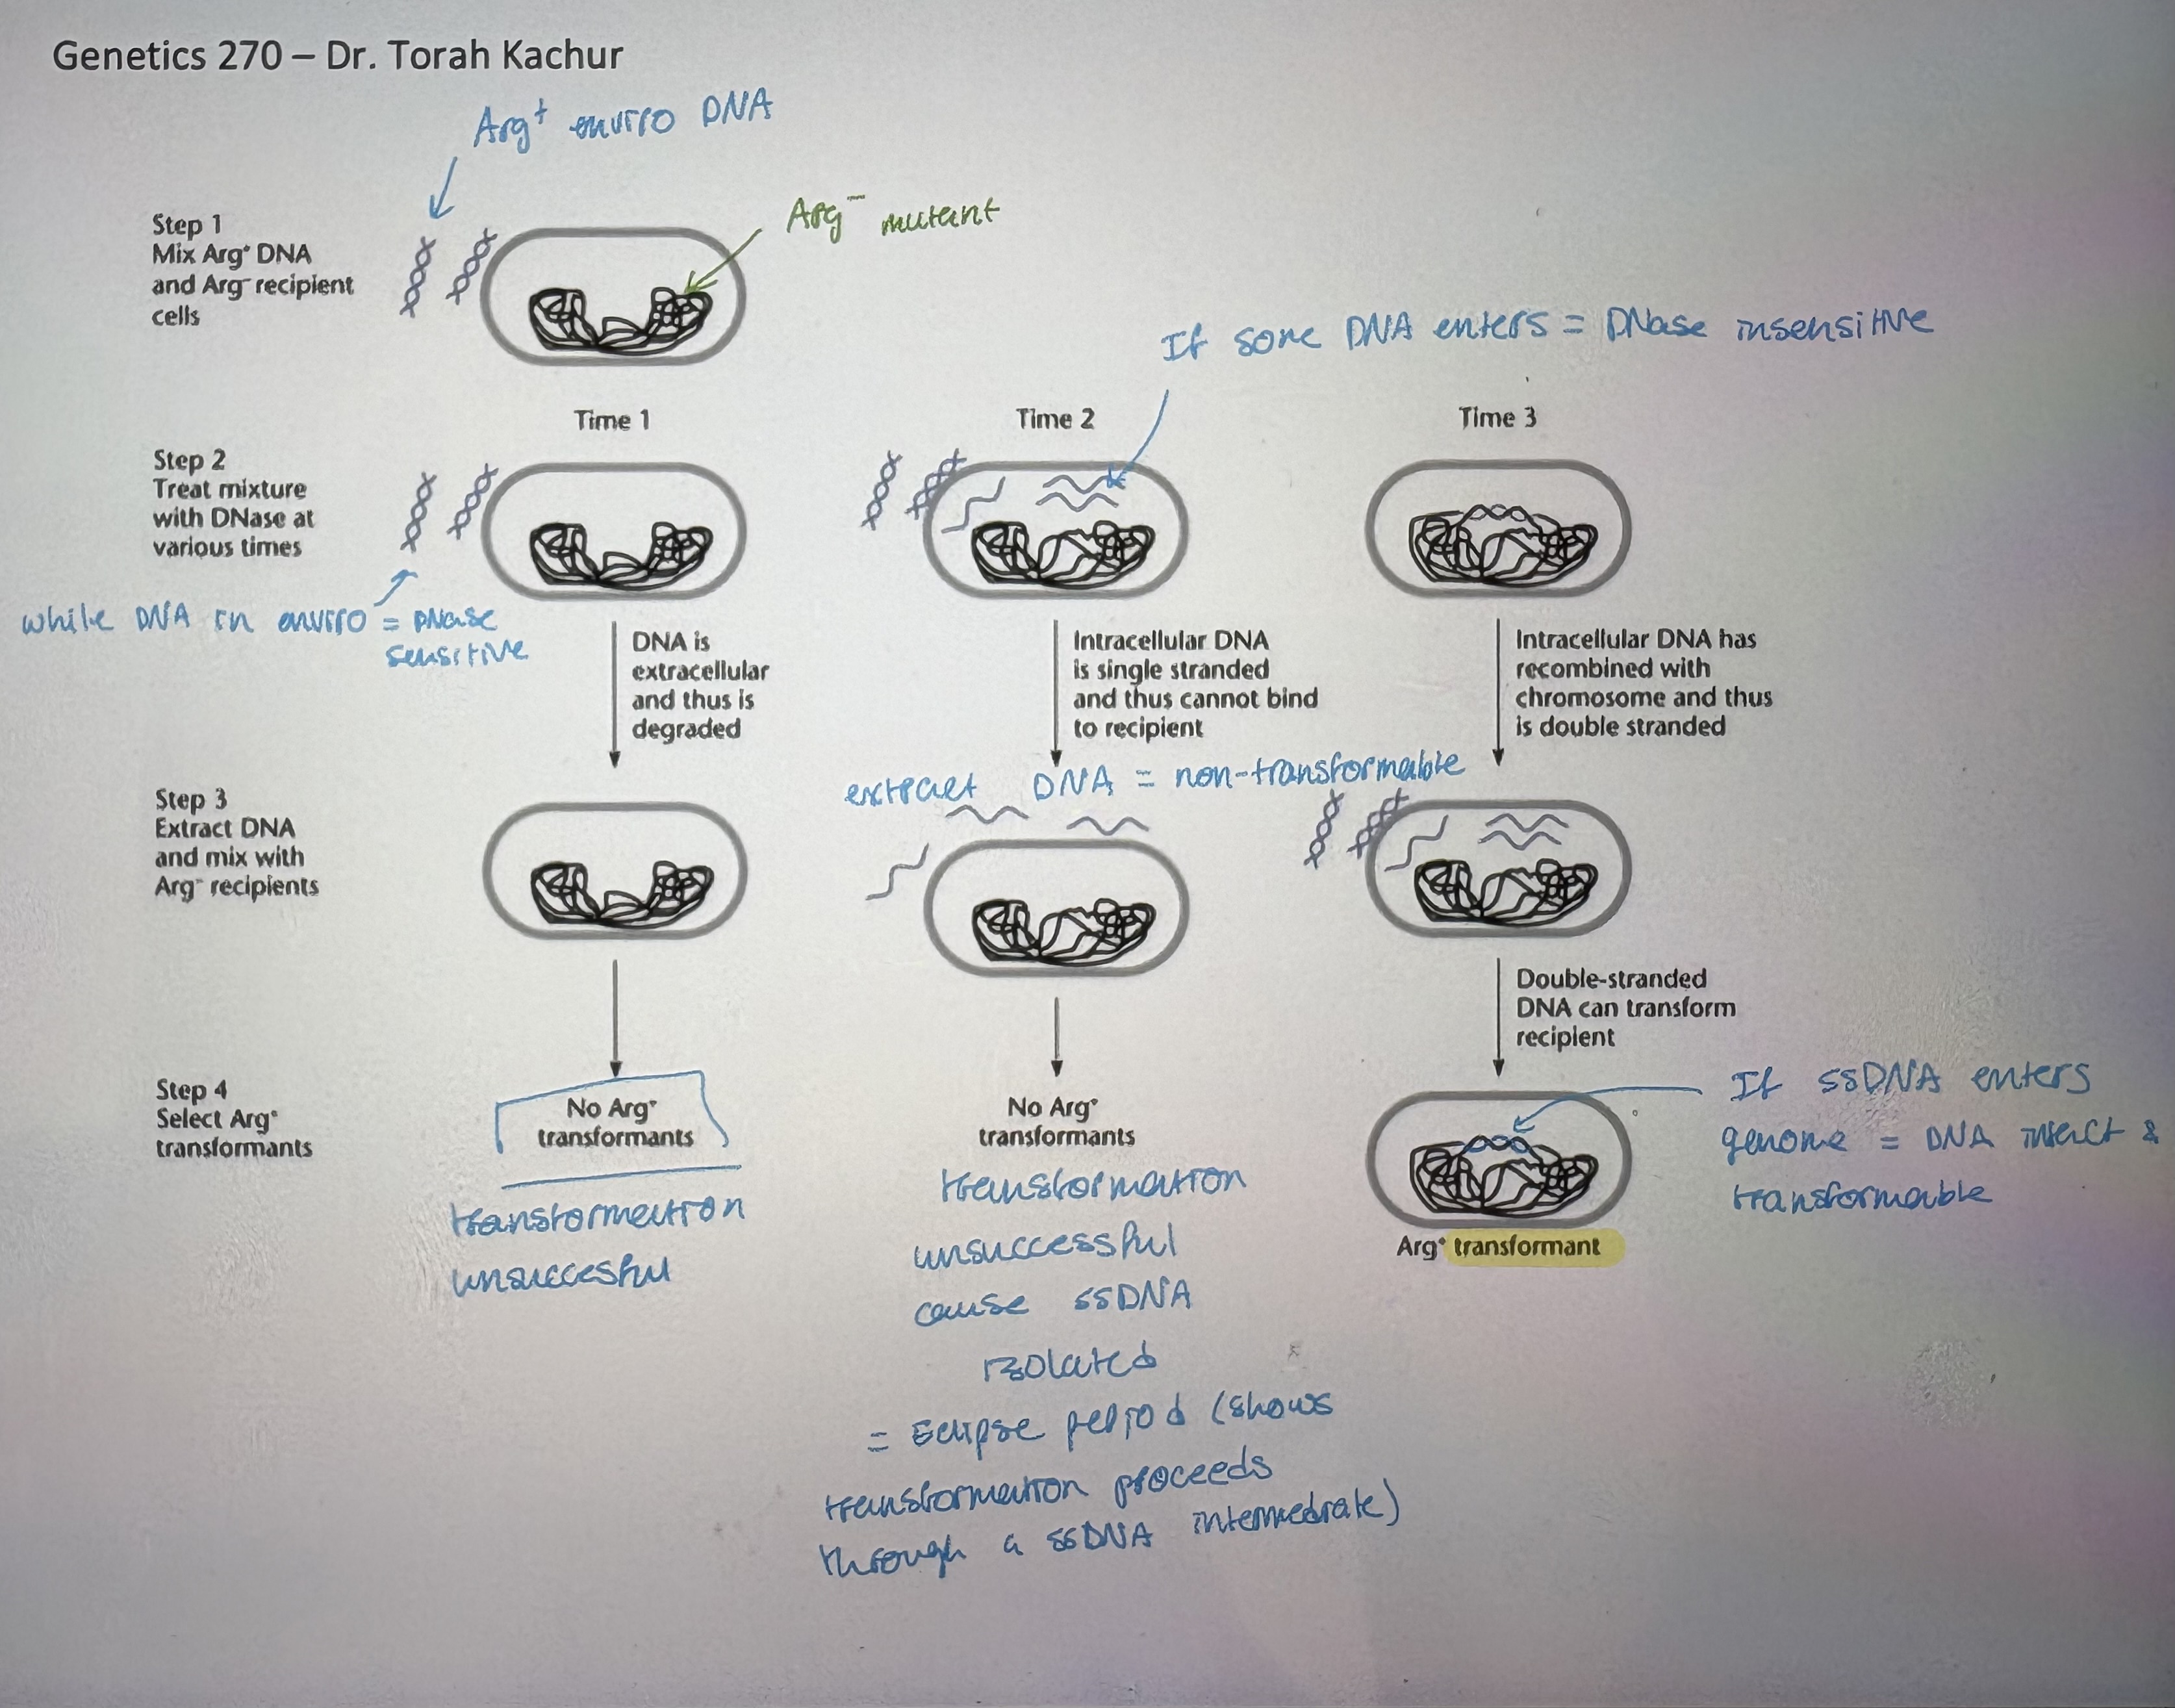 Genetics 270 – Dr. Torah Kachur
Arg+ enviro DNA
Arg- mutant
Step 1
Mix Arg+ DNA
and Arg- recipient
cells
If some DNA enters = DNase insensitive
Time 1
Time 2
Time 3
Step 2
Treat mixture
with DNase at
various times
while DNA in enviro = DNase
sensitive
DNA is
extracellular
and thus is
degraded
Intracellular DNA
is single stranded
and thus cannot bind
to recipient
Intracellular DNA has
recombined with
chromosome and thus
is double stranded
extract DNA = non-transformable
Step 3
Extract DNA
and mix with
Arg- recipients
Double-stranded
DNA can transform
recipient
Step 4
Select Arg+
transformants
No Arg+
transformants
No Arg+
transformants
If ssDNA enters
genome = DNA intact &
transformable
Arg+ transformant
transformation
unsuccesful
transformation
unsuccessful
cause ssDNA
isolated
= Eclipse period (shows
transformation proceeds
through a ssDNA intermediate)